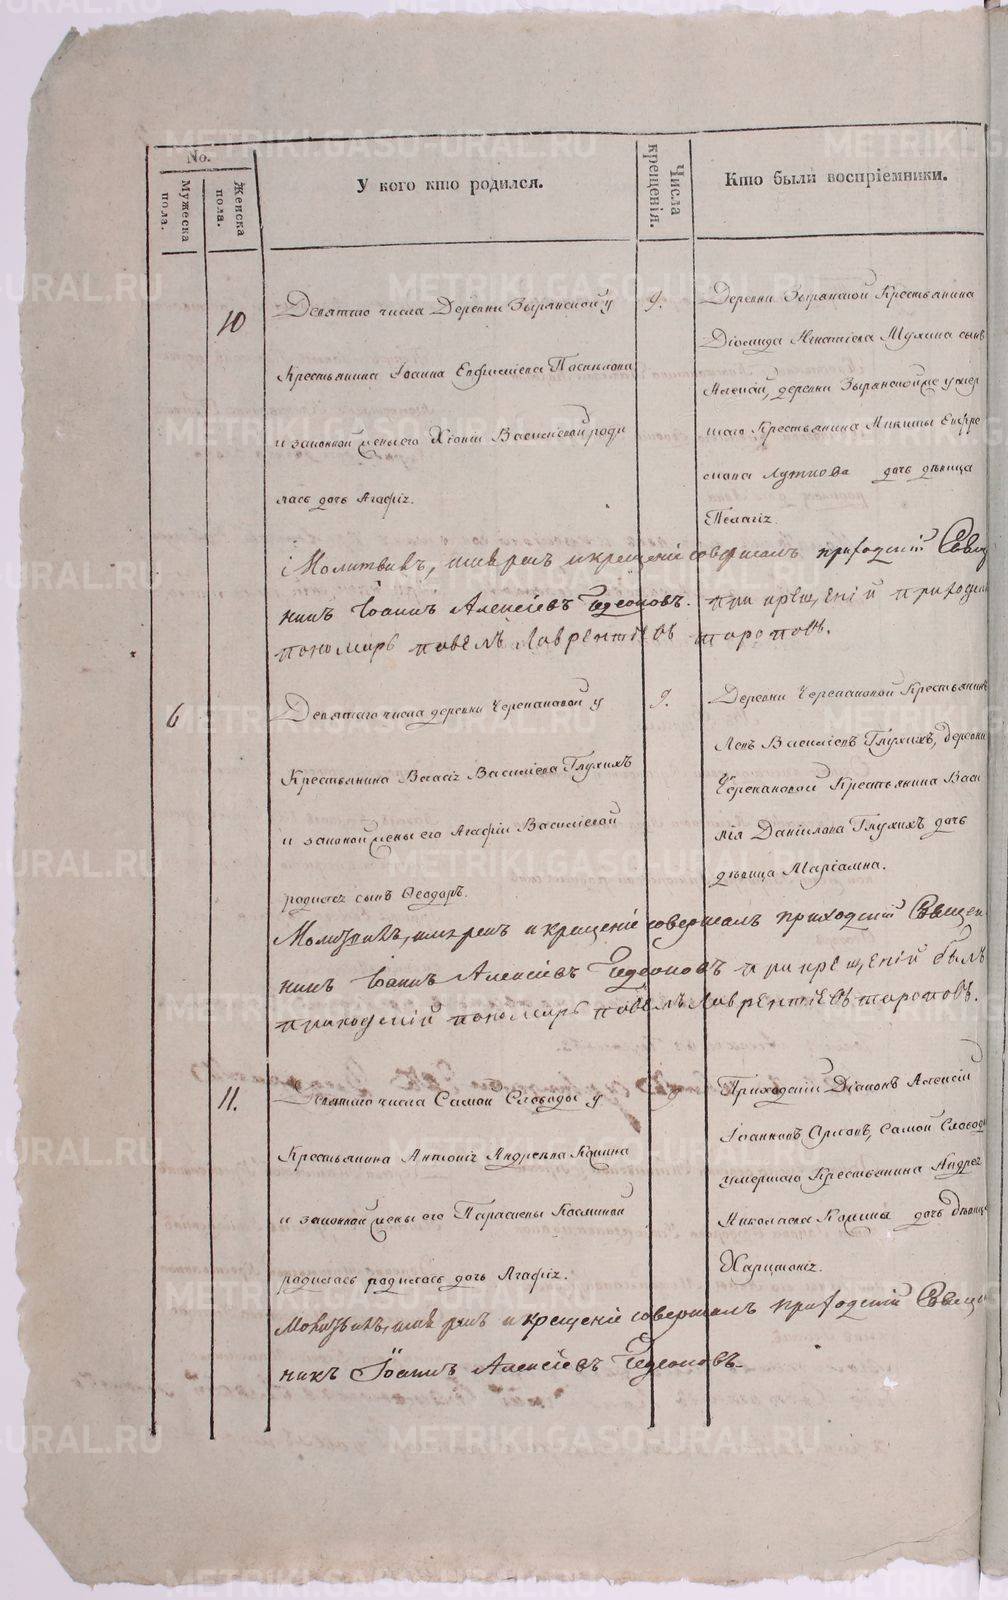 No.
Мужеска пола.
Женска пола.
У кого кто родился.
Числа крещенія.
Кто были воспріемники.
10
Девятаго числа Деревни Зырянской у
Крестьянина Іоанна Евфиміева
и законной жены его Хіоніи Василіевой роди
лась дочь Агафія.
9.
Деревни Зырянской Крестьянина
Діомида Игнатіева Мухина сынъ
Алексій, деревни Зырянской же умер
шаго Крестьянина Никиты Ефре
мова дочь дѣвица
Пелагія.
Молитвилъ, имя рекъ и крещеніе совершалъ приходскій Свящ
никъ Іоаннъ Алексіевъ Гедеоновъ. при крещеніи приходск
пономарь павелъ Лаврентіевъ тороповъ.
6
Девятаго числа деревни Черепановой у
Крестьянина Власія Василіева Глухихъ
и законной жены его Агафіи Василіевой
родился сынъ Ѳеодоръ.
9.
Деревни Черепановой Крестьянинъ
Левъ Василіевъ Глухихъ, деревни
Черепановой Крестьянина Васи
лія Даніилова Глухихъ дочь
дѣвица Маріамна.
Молитвилъ, имя рекъ и крещеніе совершалъ приходскій Священ
никъ Іоаннъ Алексіевъ Гедеоновъ при крещеніи былъ
приходскій пономарь павелъ Лаврентіевъ тороповъ.
11.
Девятаго числа Самой Слободы у
Крестьянина Антонія Андреева
и законной жены его Параскевы Косминой
родилась родилась дочь Агафія.
9
Приходскій Діаконъ Алексій
Іоанновъ самой Слободы
умершаго Крестьянина Андрея
Николаева дочь дѣвица
Харитонія.
Молитвилъ, имя рекъ и крещеніе совершалъ приходскій Свяще
никъ Іоаннъ Алексіевъ Гедеоновъ.
METRIKI.GASO-URAL.RU